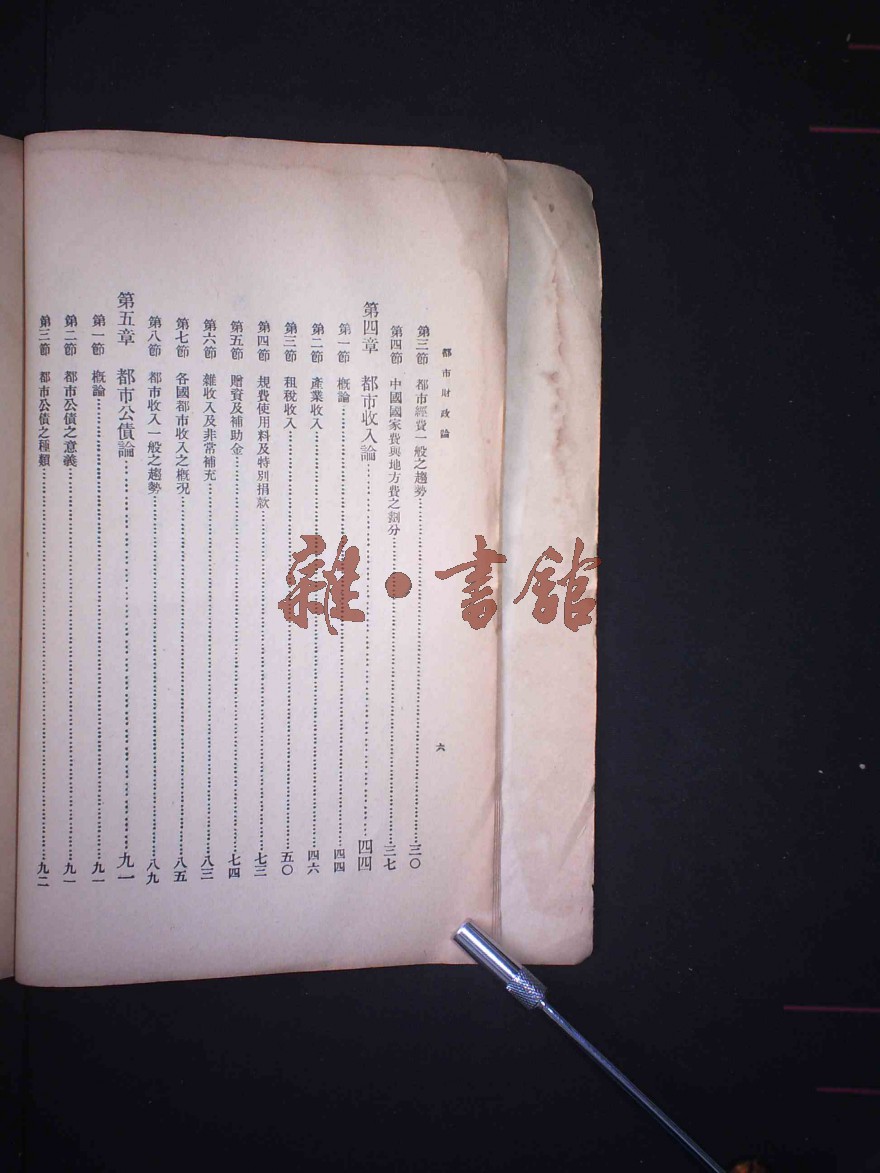 都市財政論
六
第三節 都市經費一般之趨勢……三〇
第四節 中國國家費與地方費之劃分……三七
第四章 都市收入論……四四
第一節 槪論……四四
第二節 產業收入……四六
第三節 租稅收入……五〇
第四節 規費使用料及特別捐款……七三
第五節 贈資及補助金……七四
第六節 雜收入及非常補充……八三
第七節 各國都市收入之槪况……八五
第八節 都市收入一般之趨勢……八九
第五章 都市公債論……九一
第一節 槪論……九一
第二節 都市公債之意義……九一
第三節 都市公債之種類……九二
雜·書館